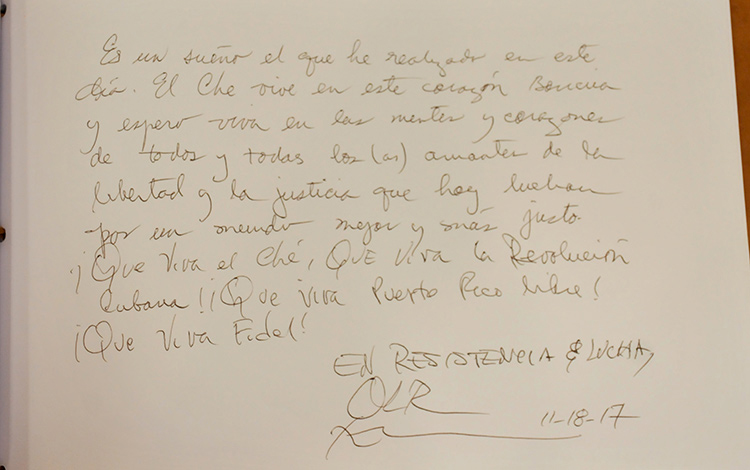 Es un sueño el que he realizado en este
día. El Che vive en este corazón Boricua
y espero viva en las mentes y corazones
de todos y todas los(as) amantes de la
libertad y la justicia que hoy luchan
por un mundo mejor y más justo
¡Que Viva el Ché, QUE Viva la Revolución
Cubana! ¡Que viva Puerto Rico Libre!
¡Que Viva Fidel!
EN RESISTENCIA & LUCHA,
OLR
11-18-17